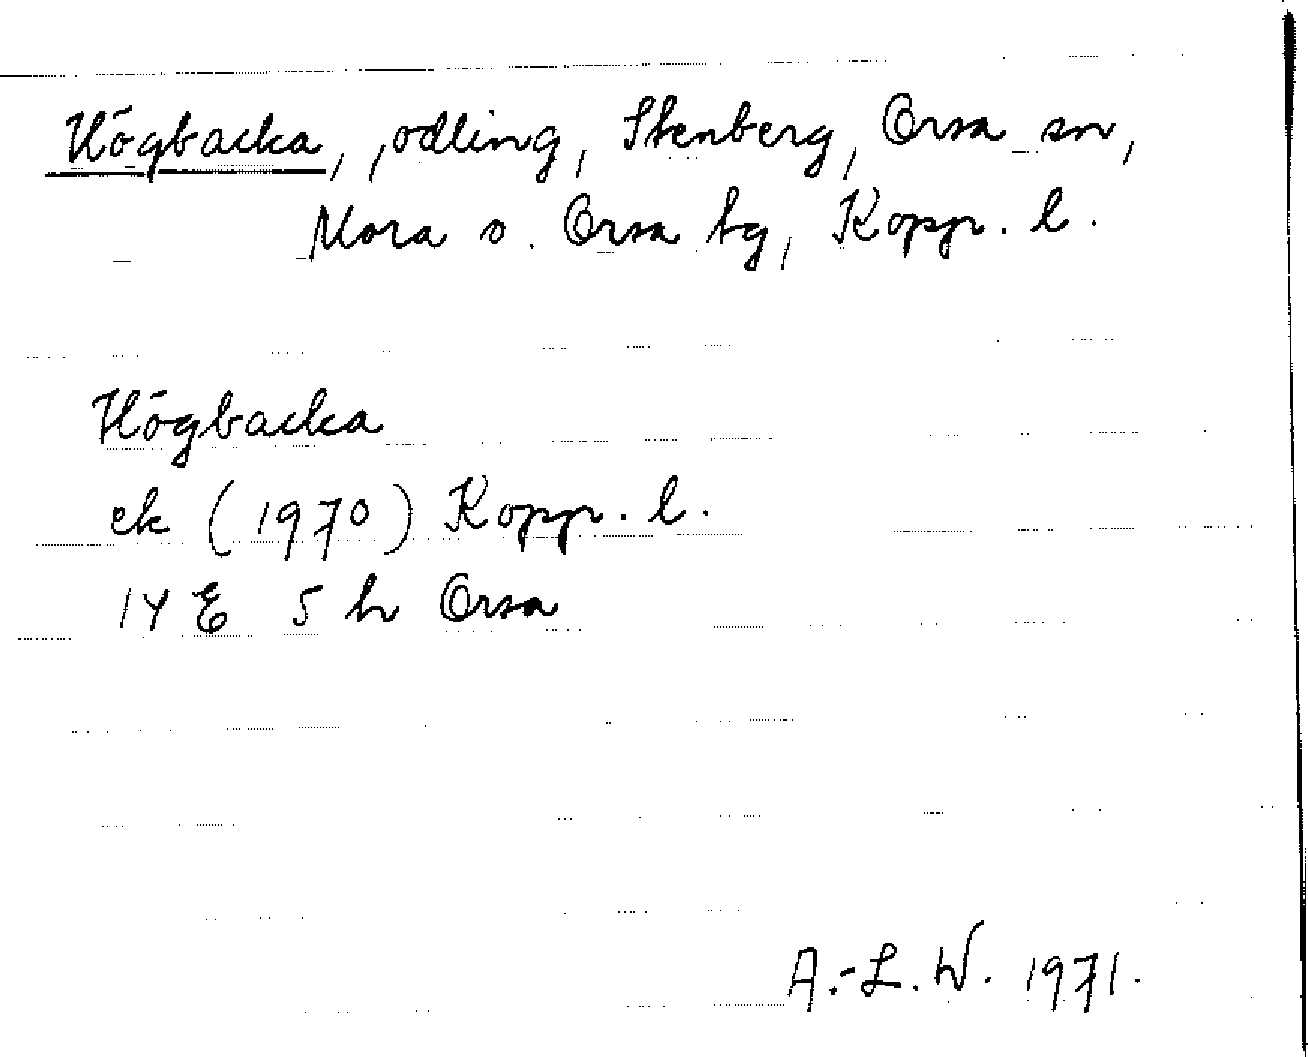 Högbacka, odling, Stenberg, Orsa sn,
Mora o. Orsa tg, Kopp. l.
Högbacka
ek (1970) Kopp. l.
14 E 5 h Orsa
A.-L. W. 1971.